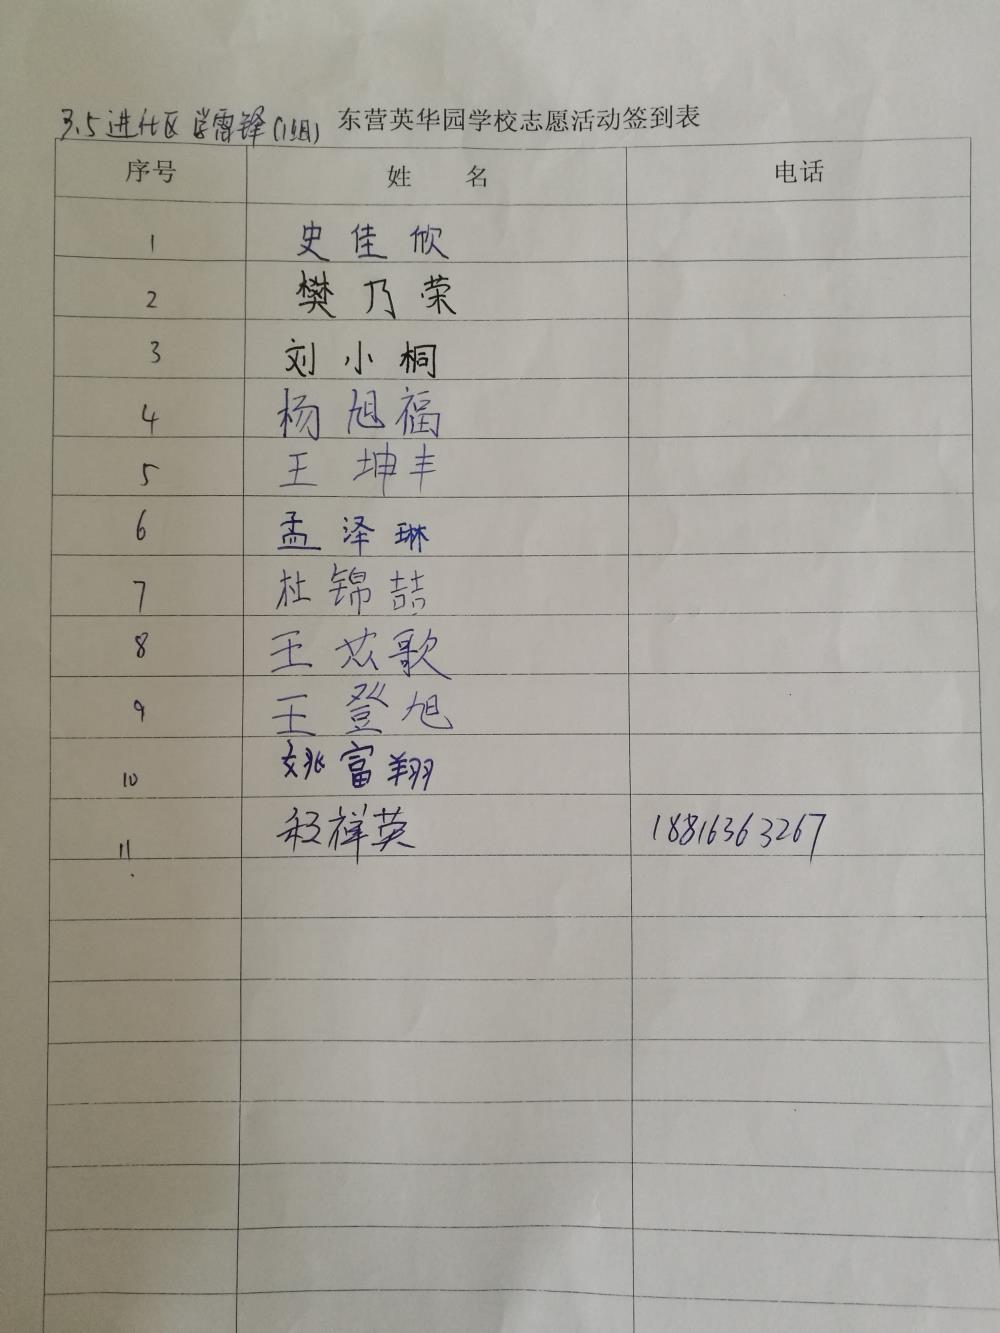 3.5进社区学雷锋(1组) 东营英华园学校志愿活动签到表
序号 姓 名 电话
1 史佳欣
2 樊乃荣
3 刘小桐
4 杨旭福
5 王坤丰
6 孟泽琳
7 杜锦喆
8 王苡歌
9 王登旭
10 姚富翔
11 祥英 18816363267